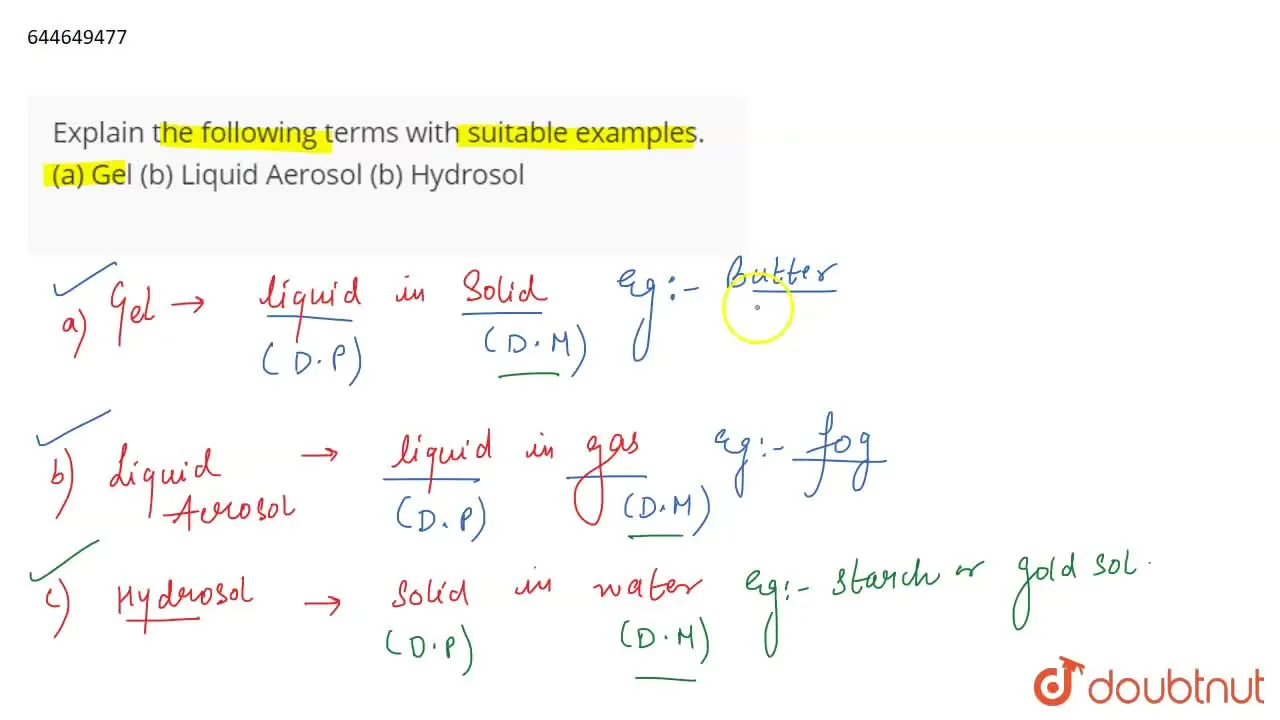 644649477
Explain the following terms with suitable examples.
(a) Gel (b) Liquid Aerosol (b) Hydrosol
a) Gel → liquid in Solid Eg:- Butter
(D.P) (D.M)
b) Liquid Aerosol → liquid in gas eg:- fog
(D.P) (D.M)
c) Hydrosol → Solid in water eg:- starch or gold sol.
(D.P) (D.M)
doubtnut